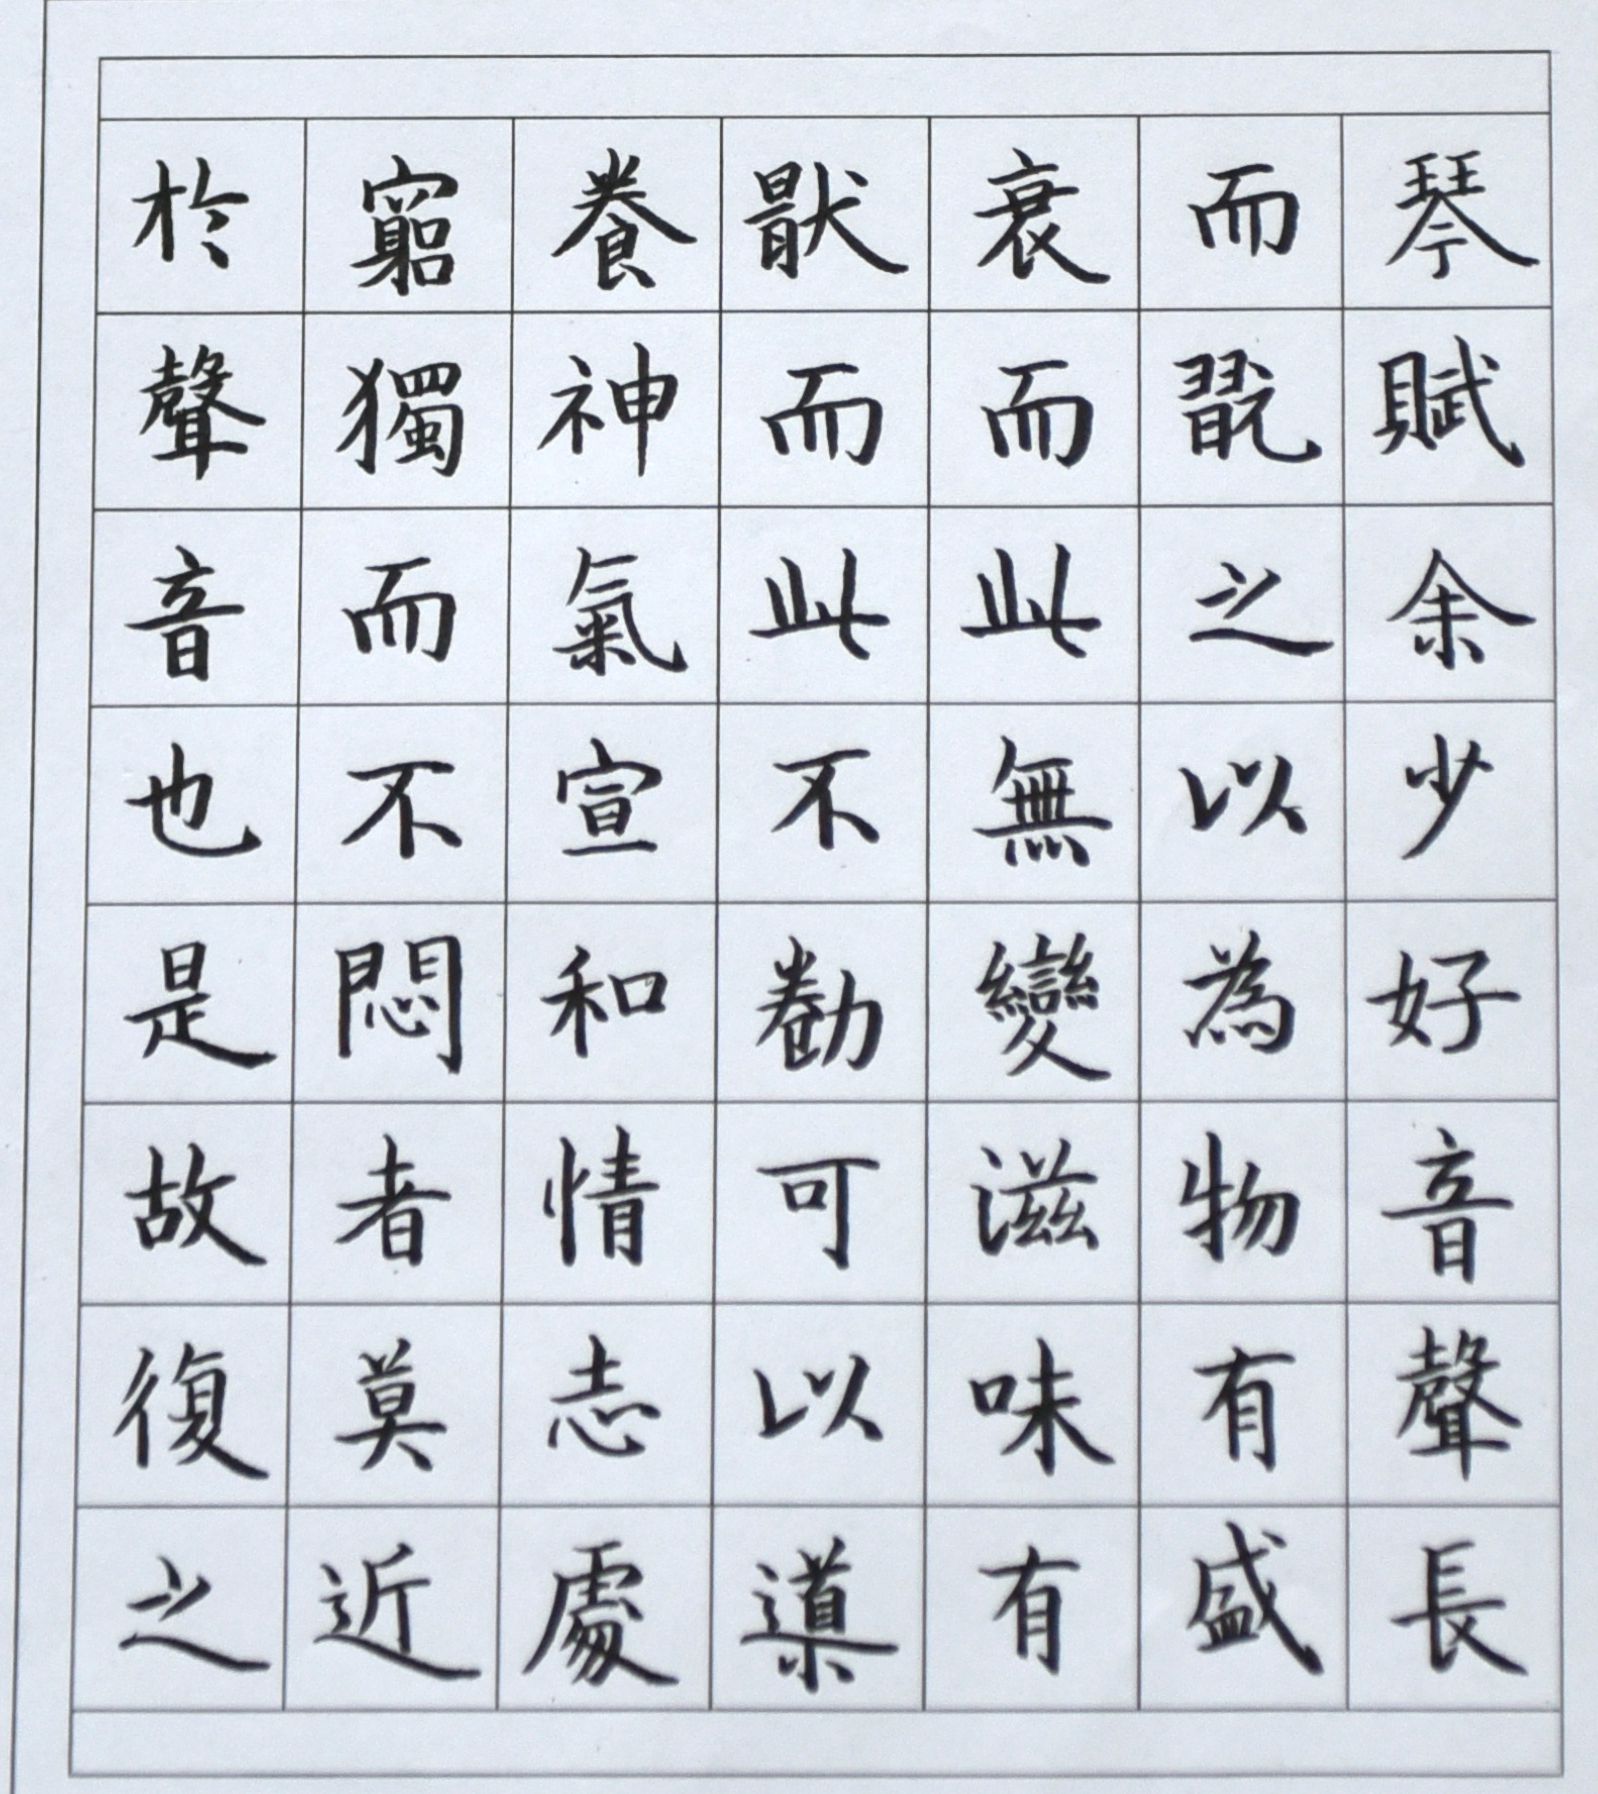 琴賦余少好音聲長
而翫之以為物有盛
衰而此無變滋味有
猒而此不勌可以導
養神氣宣和情志處
窮獨而不悶者莫近
於聲音也是故復之